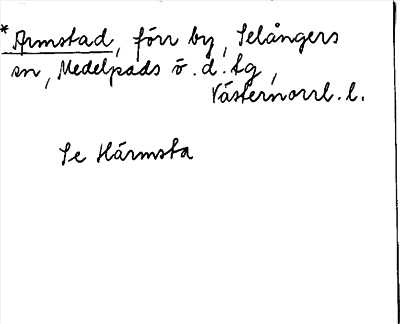 *Armstad, förr by, Selångers
sn, Medelpads ö. d. tg,
Västernorrl. l.
Se Härmsta